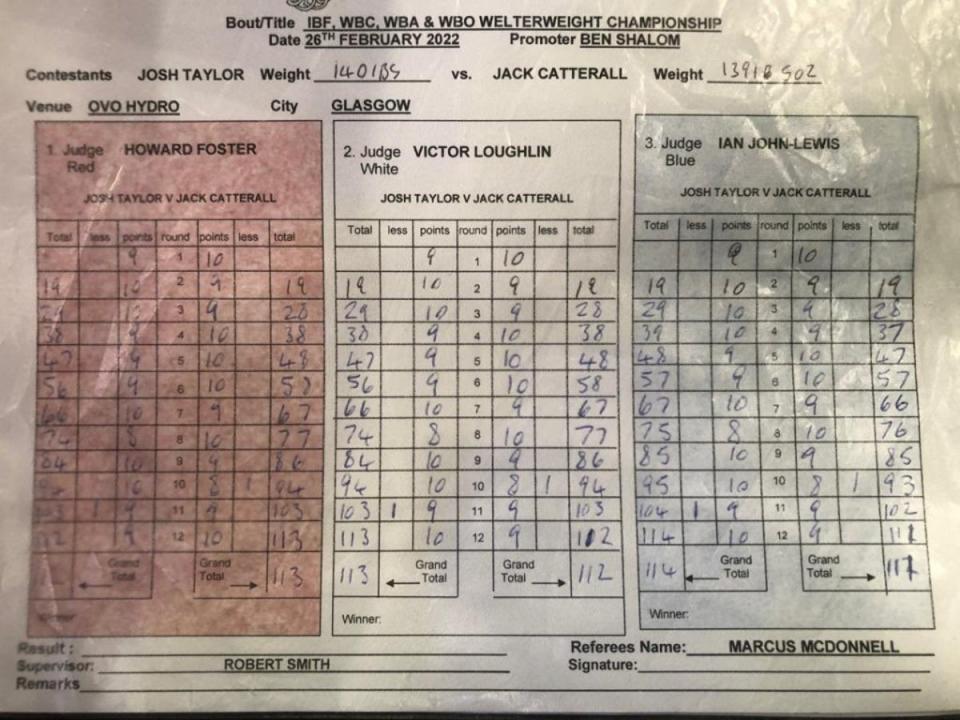 Bout/Title IBF, WBC, WBA & WBO WELTERWEIGHT CHAMPIONSHIP
Date 26TH FEBRUARY 2022 Promoter BEN SHALOM
Contestants JOSH TAYLOR Weight 140 lbs vs. JACK CATTERALL Weight 139lb 5oz
Venue OVO HYDRO City GLASGOW
1. Judge HOWARD FOSTER
Red
JOSH TAYLOR V JACK CATTERALL
Total less points round points less total
9 1 10
19 10 2 9 19
29 10 3 9 28
38 9 4 10 38
47 9 5 10 48
56 9 6 10 58
66 10 7 9 67
74 8 8 10 77
84 10 9 9 86
94 10 10 8 1 94
103 1 9 11 9 103
112 9 12 10 113
Grand Total Grand Total 113
Winner:
2. Judge VICTOR LOUGHLIN
White
JOSH TAYLOR V JACK CATTERALL
Total less points round points less total
9 1 10
19 10 2 9 19
29 10 3 9 28
38 9 4 10 38
47 9 5 10 48
56 9 6 10 58
66 10 7 9 67
74 8 8 10 77
84 10 9 9 86
94 10 10 8 1 94
103 1 9 11 9 103
113 10 12 9 112
113 Grand Total Grand Total 112
Winner:
3. Judge IAN JOHN-LEWIS
Blue
JOSH TAYLOR V JACK CATTERALL
Total less points round points less total
9 1 10
19 10 2 9 19
29 10 3 9 28
39 10 4 9 37
48 9 5 10 47
57 9 6 10 57
67 10 7 9 66
75 8 8 10 76
85 10 9 9 85
95 10 10 8 1 93
104 1 9 11 9 102
114 10 12 9 111
114 Grand Total Grand Total 111
Winner:
Result :
Supervisor: ROBERT SMITH
Remarks
Referees Name: MARCUS MCDONNELL
Signature: